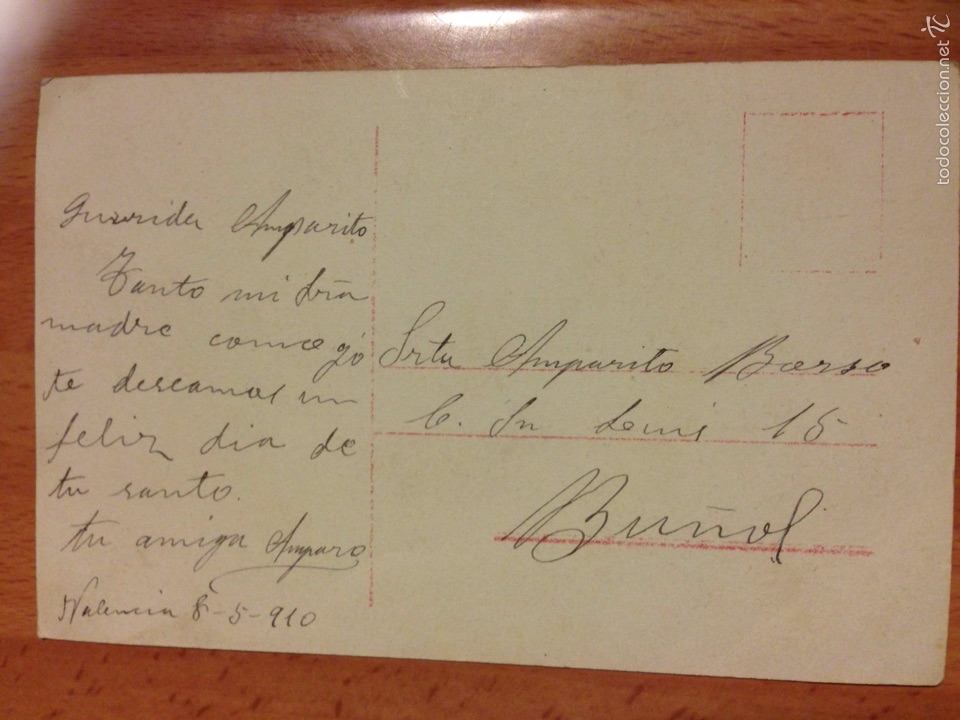 Querida Amparito
Tanto mi Sra
madre como yo
te deseamos un
feliz dia de
tu santo.
tu amiga Amparo
Valencia 8-5-910
Srta Amparito
C. Sn Louis 15
Buñol
todocoleccion.net